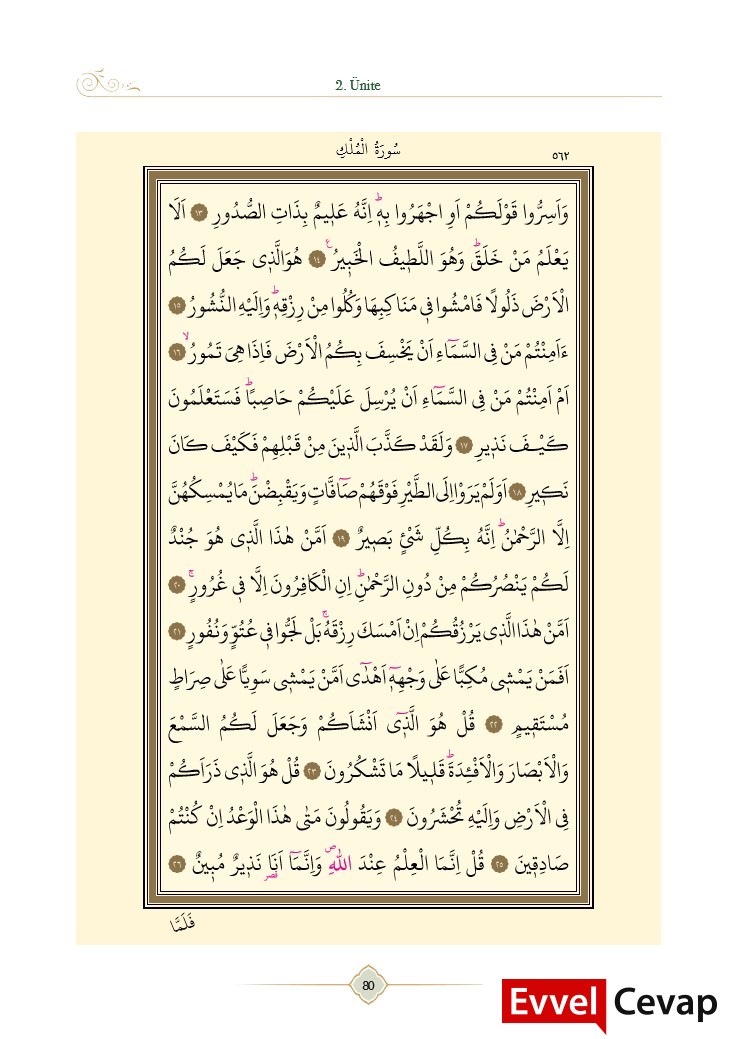 2. Ünite
سُورَةُ الْمُلْكِ
٥٦٢
وَاَسِرُّوا قَوْلَكُمْ اَوِ اجْهَرُوا بِهٖۜ اِنَّهُ عَلٖيمٌ بِذَاتِ الصُّدُورِ ١٣ اَلَا
يَعْلَمُ مَنْ خَلَقَۜ وَهُوَ اللَّطٖيفُ الْخَبٖيرُ ࣖ ١٤ هُوَ الَّذٖى جَعَلَ لَكُمُ
الْاَرْضَ ذَلُولًا فَامْشُوا فٖى مَنَاكِبِهَا وَكُلُوا مِنْ رِزْقِهٖۜ وَاِلَيْهِ النُّشُورُ ١٥
ءَاَمِنْتُمْ مَنْ فِى السَّمَٓاءِ اَنْ يَخْسِفَ بِكُمُ الْاَرْضَ فَاِذَا هِىَ تَمُورُۙ ١٦
اَمْ اَمِنْتُمْ مَنْ فِى السَّمَٓاءِ اَنْ يُرْسِلَ عَلَيْكُمْ حَاصِبًاۜ فَسَتَعْلَمُونَ
كَيْفَ نَذٖيرِ ١٧ وَلَقَدْ كَذَّبَ الَّذٖينَ مِنْ قَبْلِهِمْ فَكَيْفَ كَانَ
نَكٖيرِ ١٨ اَوَلَمْ يَرَوْا اِلَى الطَّيْرِ فَوْقَهُمْ صَٓافَّاتٍ وَيَقْبِضْنَۜ مَا يُمْسِكُهُنَّ
اِلَّا الرَّحْمٰنُۜ اِنَّهُ بِكُلِّ شَیْءٍ بَصٖيرٌ ١٩ اَمَّنْ هٰذَا الَّذٖى هُوَ جُنْدٌ
لَكُمْ يَنْصُرُكُمْ مِنْ دُونِ الرَّحْمٰنِۜ اِنِ الْكَافِرُونَ اِلَّا فٖى غُرُورٍۚ ٢٠
اَمَّنْ هٰذَا الَّذٖى يَرْزُقُكُمْ اِنْ اَمْسَكَ رِزْقَهُۚ بَلْ لَجُّوا فٖى عُتُوٍّ وَنُفُورٍ ٢١
اَفَمَنْ يَمْشٖى مُكِبًّا عَلٰى وَجْهِهٖٓ اَهْدٰٓى اَمَّنْ يَمْشٖى سَوِيًّا عَلٰى صِرَاطٍ
مُسْتَقٖيمٍ ٢٢ قُلْ هُوَ الَّذٖٓى اَنْشَاَكُمْ وَجَعَلَ لَكُمُ السَّمْعَ
وَالْاَبْصَارَ وَالْاَفْـِٔدَةَۜ قَلٖيلًا مَا تَشْكُرُونَ ٢٣ قُلْ هُوَ الَّذٖى ذَرَاَكُمْ
فِى الْاَرْضِ وَاِلَيْهِ تُحْشَرُونَ ٢٤ وَيَقُولُونَ مَتٰى هٰذَا الْوَعْدُ اِنْ كُنْتُمْ
صَادِقٖينَ ٢٥ قُلْ اِنَّمَا الْعِلْمُ عِنْدَ اللّٰهِۖ وَاِنَّمَٓا اَنَا۬ قصر نَذٖيرٌ مُبٖينٌ ٢٦
فَلَمَّا
80
Evvel Cevap